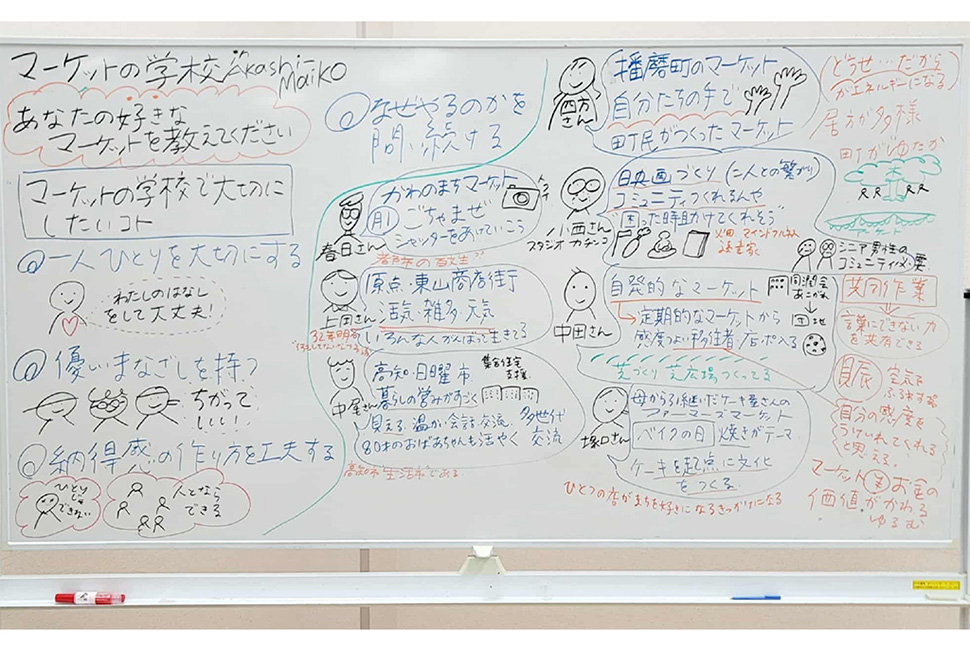 マーケットの学校 in Akashi-
Maiko
あなたの好きな
マーケットを教えてください
マーケットの学校で大切に
したいコト
@一人ひとりを大切にする
わたしのはなし
をして大丈夫!
@優しいまなざしを持つ
ちがって
いい
@納得感の作り方を工夫する
ひとり
じゃ
できない
人となら
できる
@なぜやるのかを
問い続ける
かわのまちマーケット
月1 ごちゃまぜ
シャッターをあけていこう
春日さん
原点・東山商店街
活気・雑多・天気
いろんな人ががんばって生きてる
上岡さん
高知・日曜市
集合住宅
支援
暮らしの営みがすごく
見える 温か 会話 交流
多世代
交流
80才のおばあちゃんも活やく
中尾さん
高知市"生活市"である
四方
さん
播磨町のマーケット
自分たちの手で
町民がつくったマーケット
映画づくり (二人との繋がり)
コミュニティつくれるんや
困った時助けてくれそう
小西さん
スタジオ カチンコ
シニア男性の
コミュニティ
自発的なマーケット
→定期的なマーケットから
感度つよい移住者/店が入る
団地
中田さん
芝づくり 芝広場つくってる
母から引継いだケーキ屋さんの
ファーマーズマーケット
ベイクの日 焼きがテーマ
ケーキを起点に文化
をつくる
塚口さん
ひとつの店がまちを好きになるきっかけになる
どうせ…だから
がエネルギーになる
居方が多様
町がゆたか
共同作業
言葉にできない力
を共有できる
自分の感度を
うけいれてくれる
と思える
マーケット お金の
価値がかわる
ゆるむ